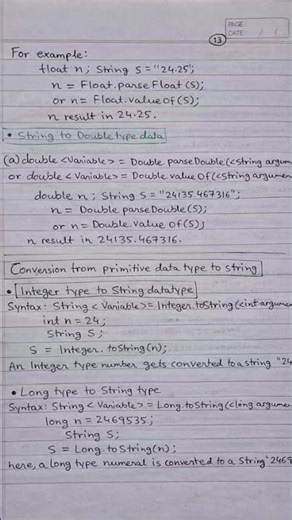 PAGE
DATE
13
For example:
float n; String S = "24.25";
n = Float.parseFloat(S);
or n = Float.valueOf(S);
n result in 24.25.
• String to Double type data
(a) double <Variable> = Double.parseDouble(<string argum
or double <Variable> = Double.valueOf(<string argumen
double n; String S = "24135.467316";
n = Double parseDouble(S);
or n = Double.valueOf(S);
n result in 24135.467316.
Conversion from primitive data type to string
• Integer type to String datatype
Syntax: String <Variable> = Integer.toString(<int argumen
int n = 24;
String S;
S = Integer.toString(n);
An Integer type number gets converted to a string "24
• Long type to String type
Syntax: String <Variable> = Long.toString(<long argume
long n = 2469535;
String S;
S = Long.toString(n);
here, a long type numeral is converted to a String "2469